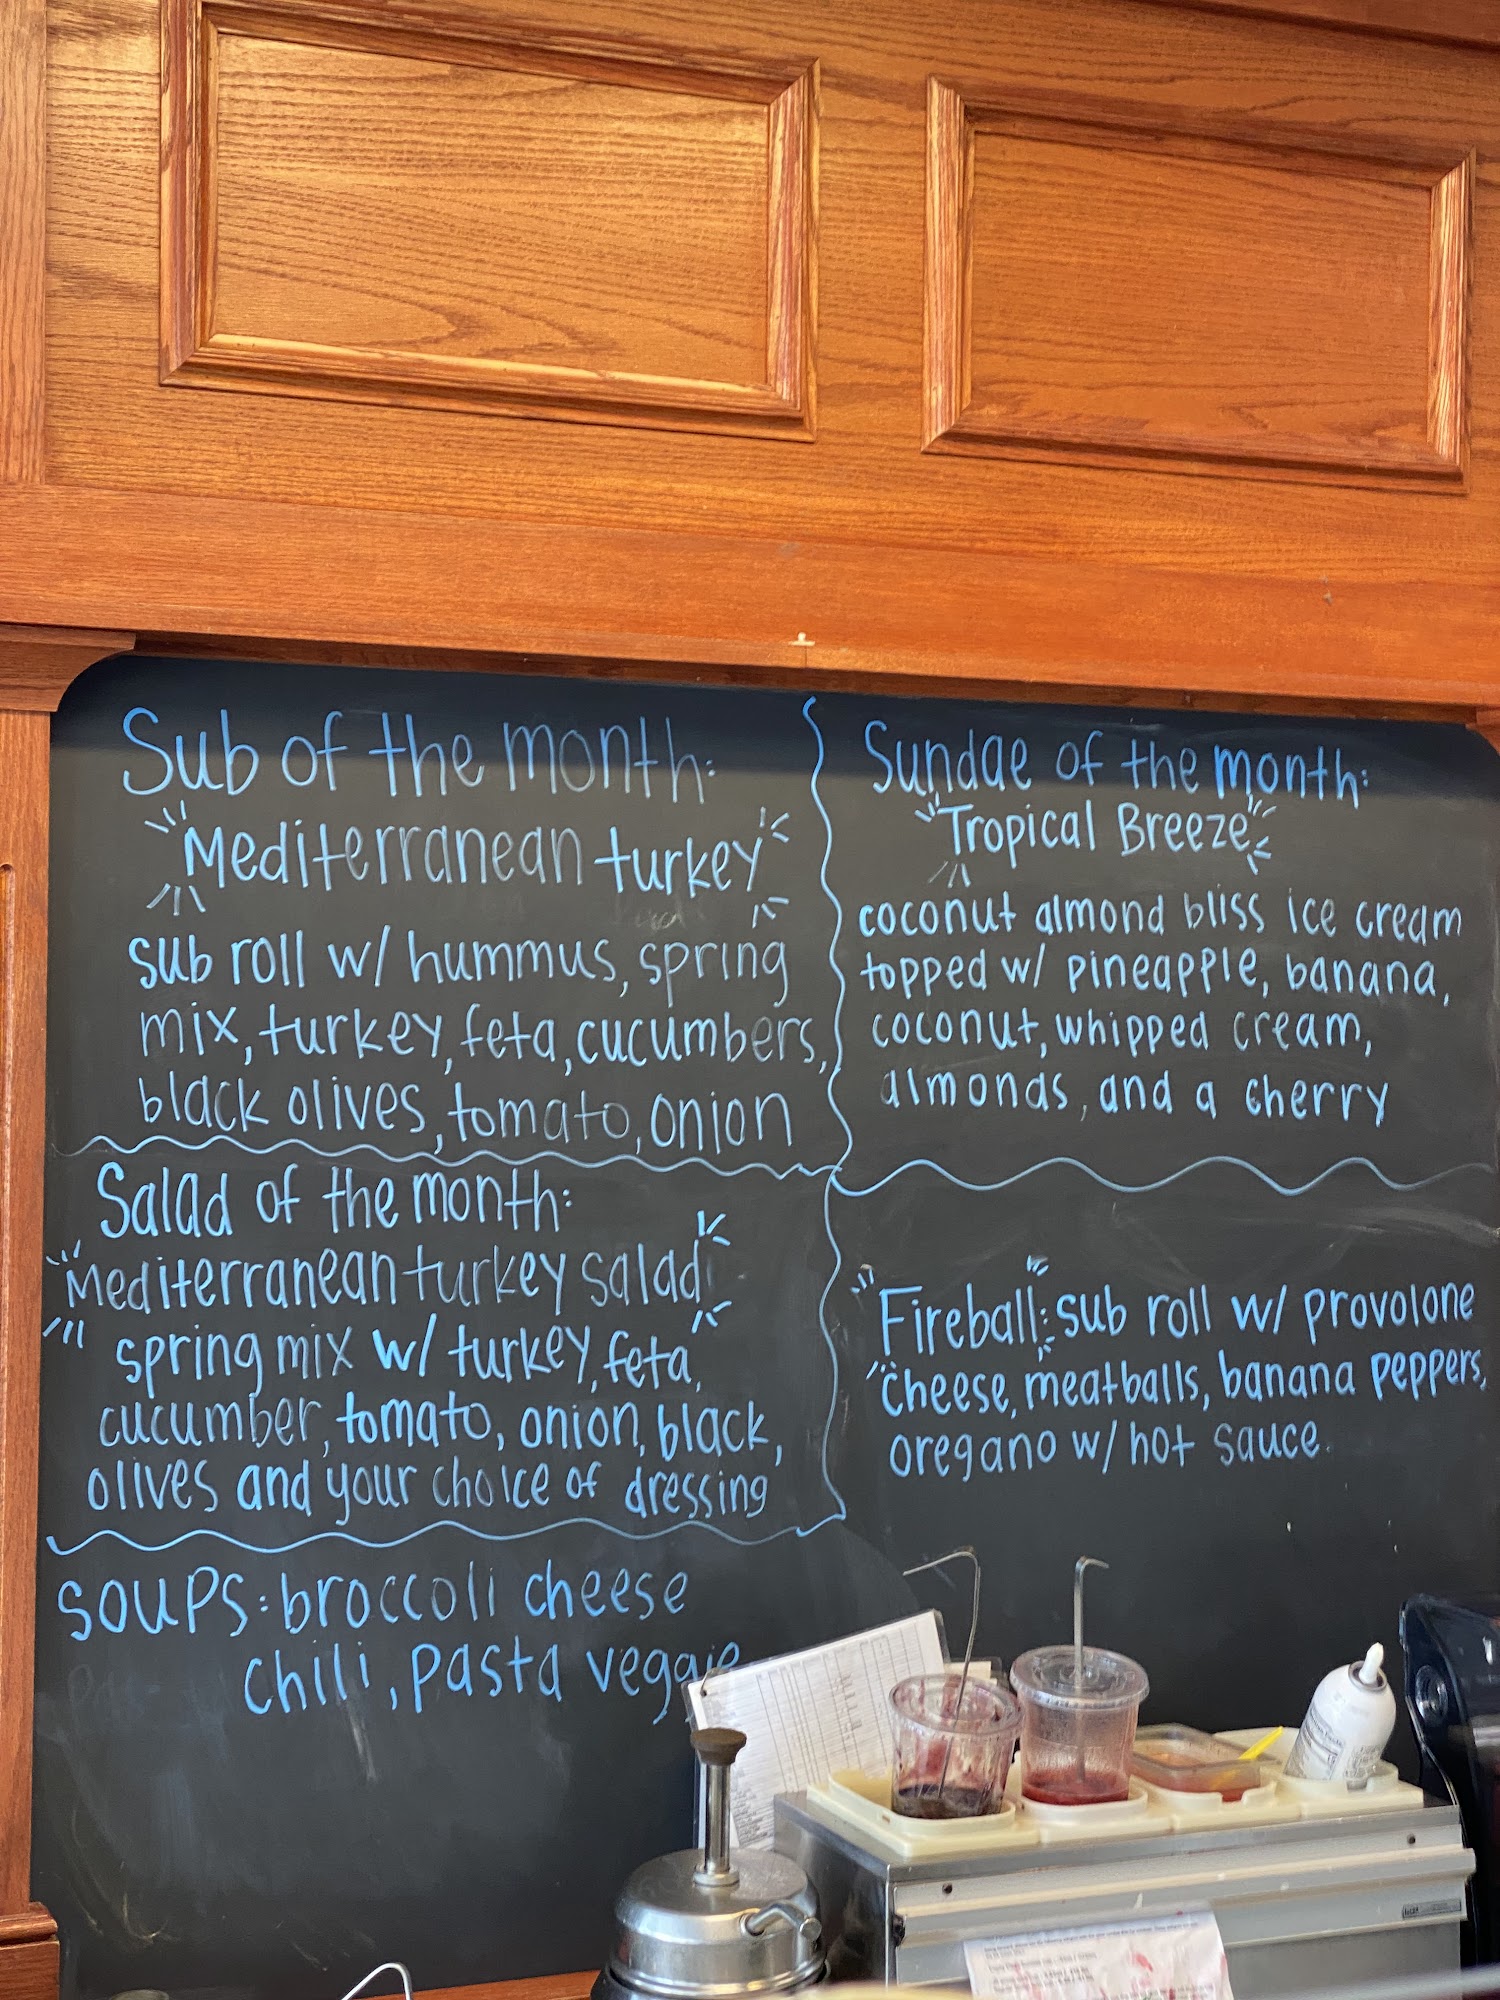 Sub of the month:
"Mediterranean turkey"
sub roll w/ hummus, spring
mix, turkey, feta, cucumbers,
black olives, tomato, onion
Salad of the month:
Mediterranean turkey salad
spring mix w/ turkey, feta,
cucumber, tomato, onion, black,
olives and your choice of dressing
soups: broccoli cheese
chili, pasta veggie
Sundae of the month:
"Tropical Breeze"
coconut almond bliss ice cream
topped w/ pineapple, banana,
coconut, whipped cream,
almonds, and a cherry
Fireball: sub roll w/ provolone
cheese, meatballs, banana peppers,
oregano w/ hot sauce.